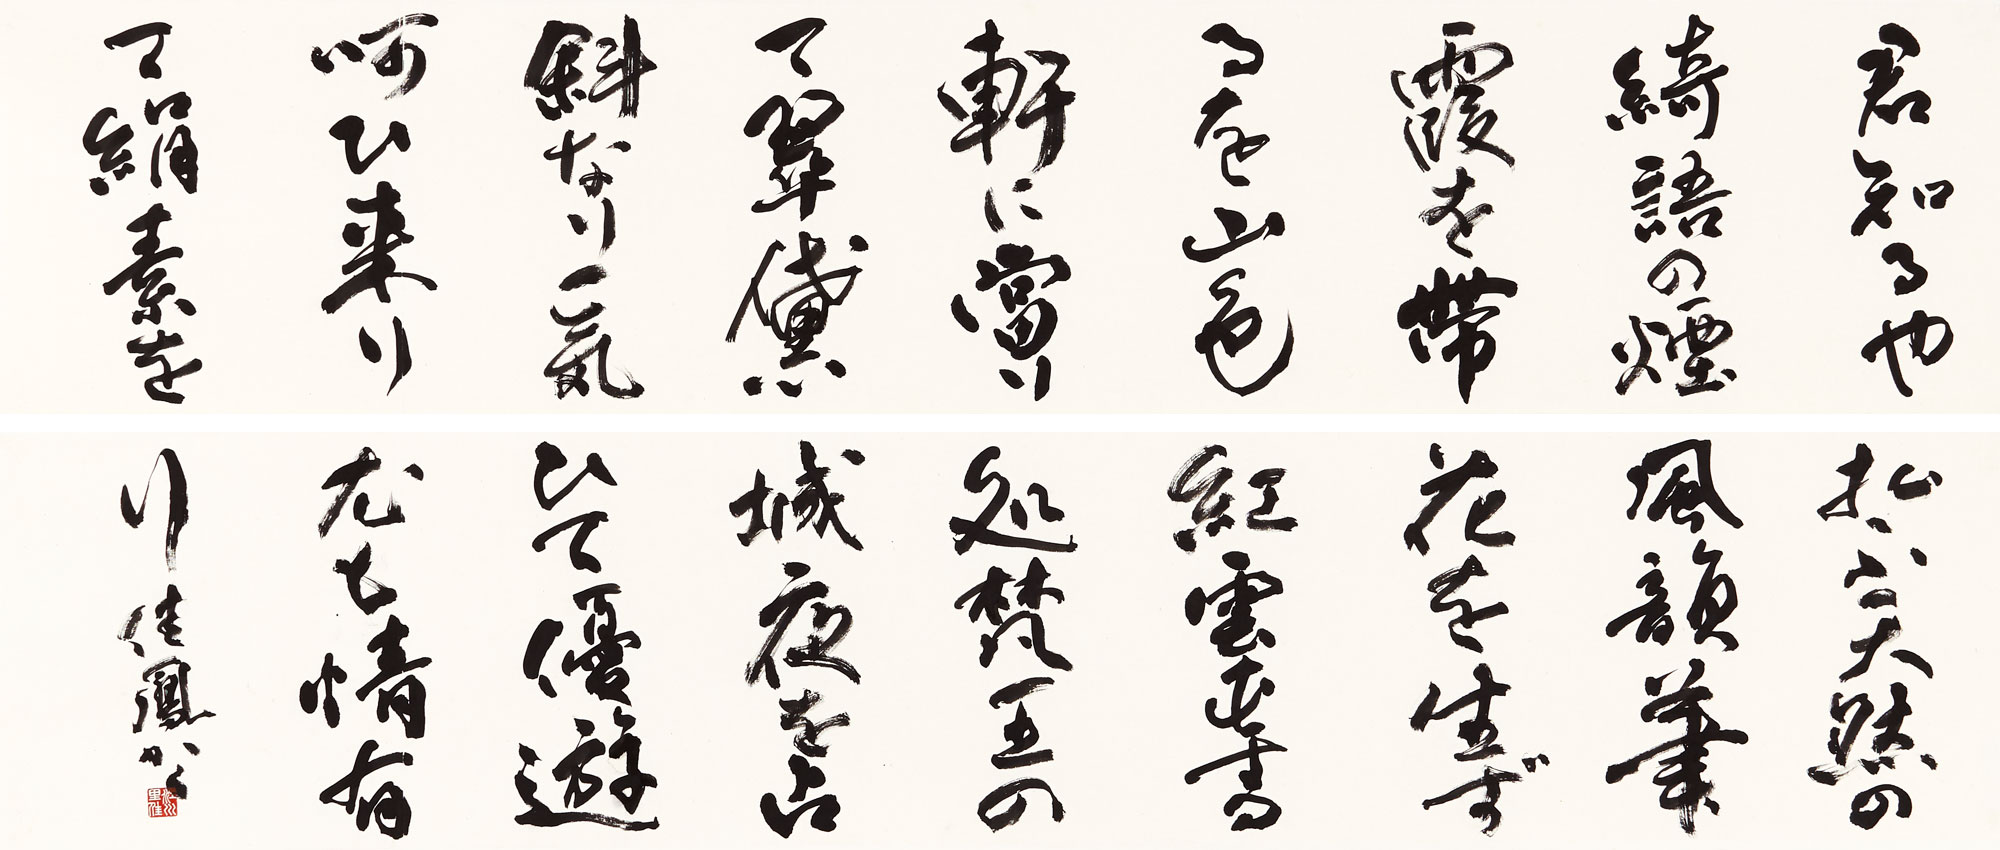 君知る也
綺語の煙
霞を帯
るを山色
軒に當り
て翠黛
斜なり一気
呵ひ来り
て絹素を
天然の
風韻筆
花を生ず
紅雲屯する
処梵王の
城夜を占
ひて優遊
尤も情有
り 佳鳳かく